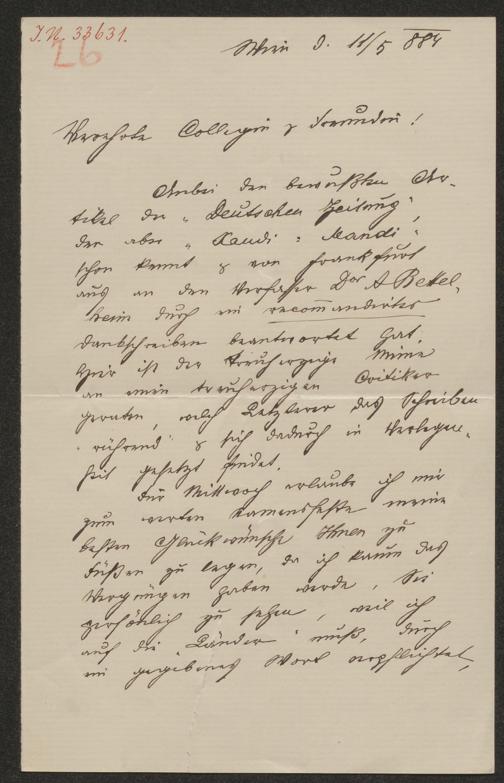 I.N. 33631.
26
Wien d. 11/5 884
Verehrte Collegin & Freundin!
Anbei den bewußten Ar-
tikel der „Deutschen Zeitung",
der aber „ - Mandi"
schon kennt & von Frankfurt
aus an den Verfasser Dor A Betel-
heim durch ein recommandirtes
Dankschreiben beantwortet hat.
Hier ist der treuherzige Mime
an einen treuherzigen Critiker
geraten, welch Letzterer das Schreiben
„rührend" & sich dadurch in Verlegen-
heit gesetzt findet.
Für Mittwoch erlaube ich mir
zum werten Namensfeste meine
besten Glückwünsche Ihnen zu
Füßen zu legen, da ich kaum das
Vergnügen haben werde, Sie
persönlich zu sehen, weil ich
auf die „Länder" muß, durch
ein gegebenes Wort verpflichtet,